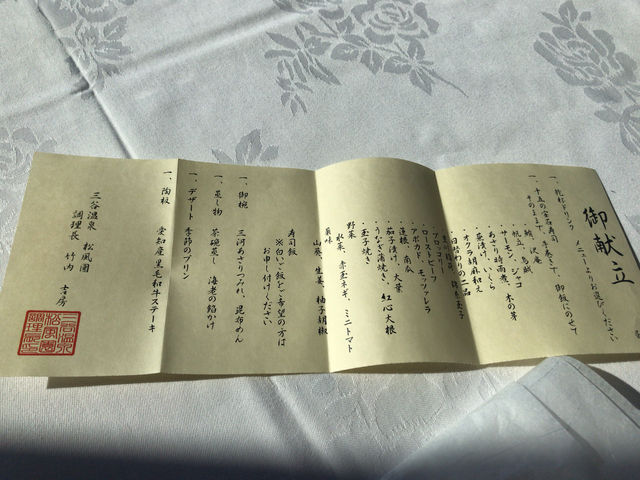 御献立
一、乾杯ドリンク メニューよりお選びください
一、十五の宝石寿司 巻きて、御飯にのせて
そのままで、
鯛、
帆立、烏賊
サーモン、ジャコ
あさり時雨煮、木の芽
菜漬け、いくら
オクラ胡麻和え
・日替わりの二品
ブロッコリー
・ローストビーフ
・アボカド、モッツァレラ
・蓮根、南瓜
・茄子漬け、大葉
・うなぎ蒲焼き、紅心大根
・玉子焼き
野菜
水菜、赤玉ネギ、ミニトマト
薬味
山葵、生姜、柚子胡椒
寿司飯
※白いご飯をご希望の方は
お申し付けください
一、御椀 三河あさりつみれ、昆布めん
一、蒸し物 茶碗蒸し 海老の餡かけ
一、デザート 季節のプリン
一、陶板 愛知産黒毛和牛ステーキ
三谷温泉 松風園
調理長 竹内 吉房